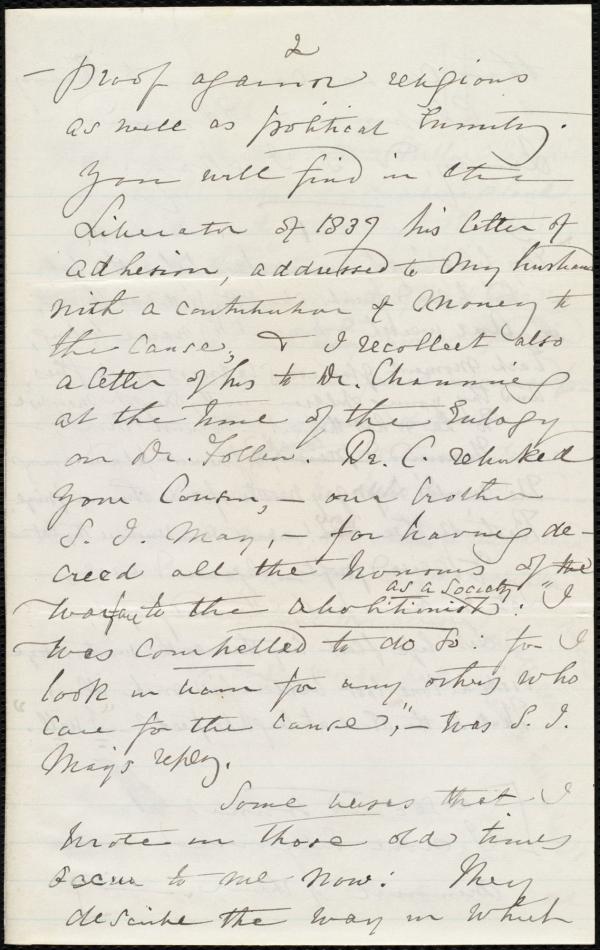 2
– proof against religious
as well as political Enmity.
You will find in the
Liberator of 1839 his letter of
adhesion, addressed to my husband
with a contribution of money to
the cause, & I recollect also
a letter of his to Dr. Channing
at the time of the Eulogy
on Dr. Follen. Dr. C. rebuked
your Cousin, – our brother
S. J. May, – for having de-
creed all the honours of the
warfare to the abolitionists as a Society: "I
was compelled to do so: for I
look in vain for any others who
care for the cause", – was S. J.
May's reply.
Some verses that I
wrote in those old times
occur to me now: They
describe the way in which